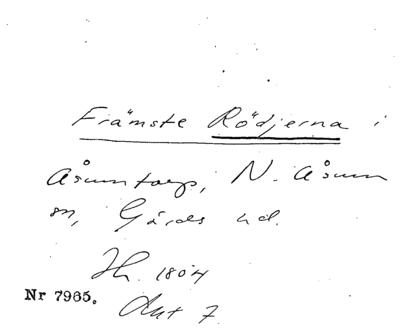 Främste Rödjerna i
Åsumtorp, N. Åsum
sn, Gärds hd.
Hh. 1804
Nr 7965. Akt 7